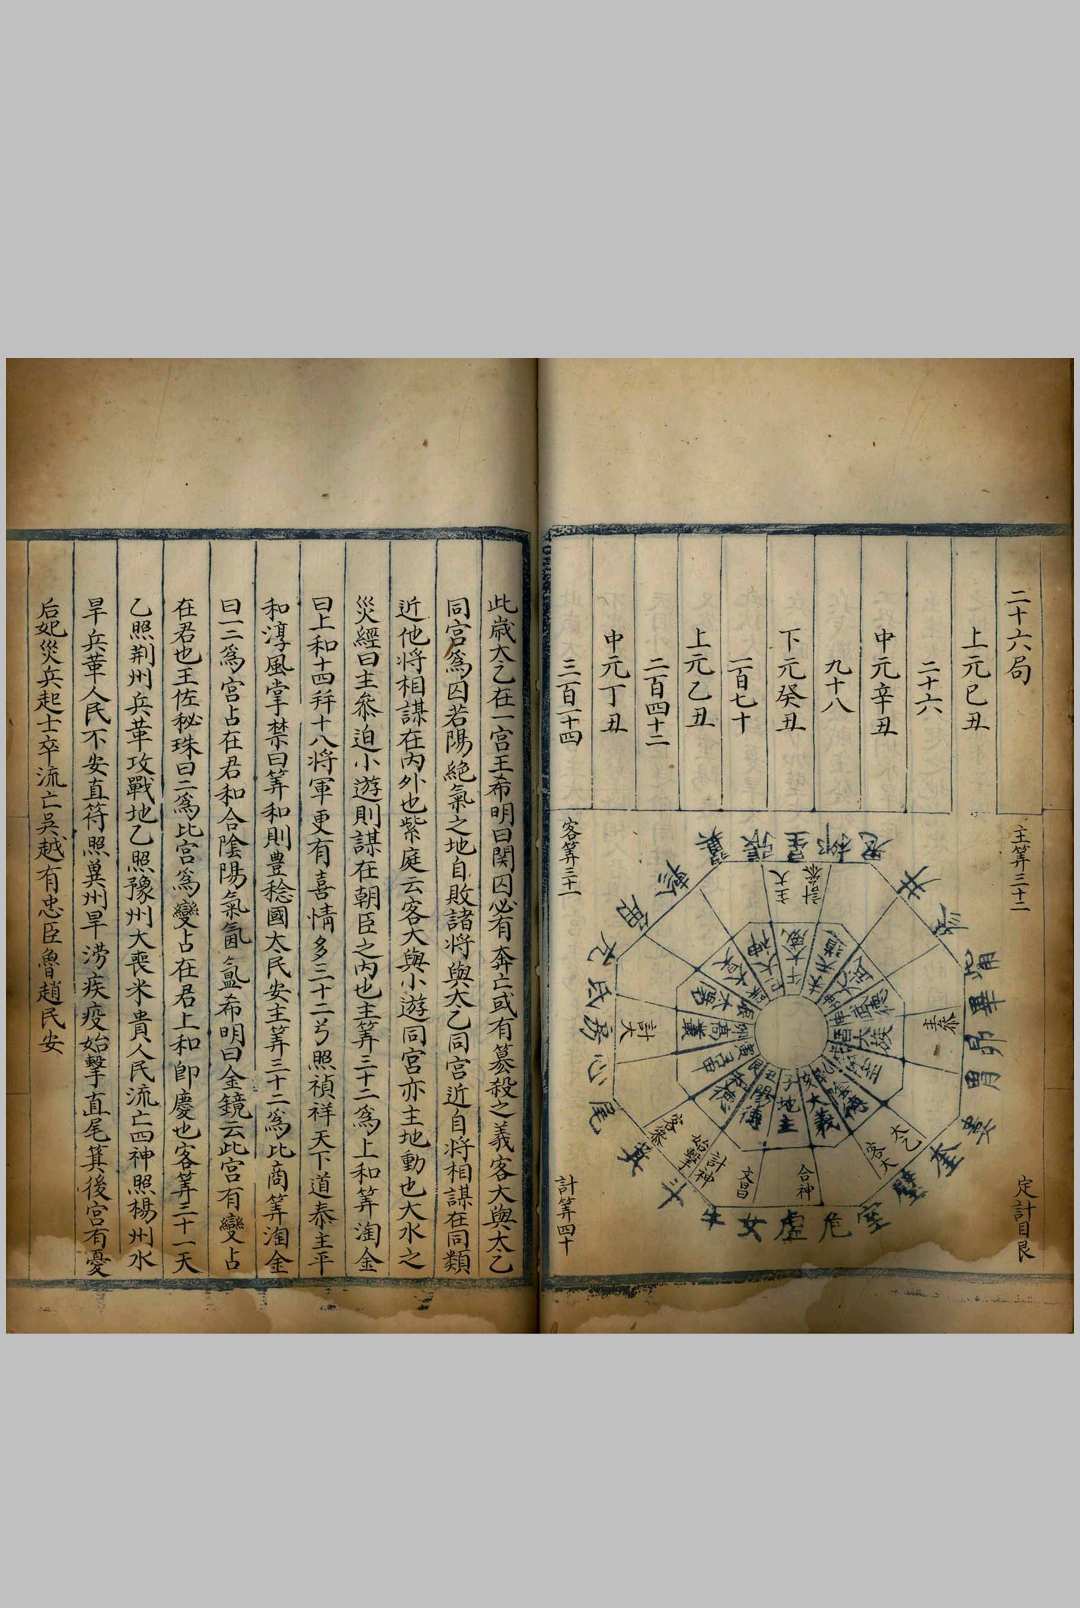 二十六局
上元巳丑
二十六
中元辛丑
九十八
下元癸丑
一百七十
上元乙丑
二百四十二
中元丁丑
三百一十四
主筭三十二
定計目艮
客筭三十一
計筭四十
翼
張
星
柳
鬼
井
參
觜
畢
昴
胃
婁
奎
壁
室
危
虛
女
牛
斗
箕
尾
心
房
氐
亢
角
軫
主大
計參
主參
太乙
客大
合神
文昌
計神
始擊
客參
計大
地主
大義
此歲太乙在一宫王希明曰関囚必有奔亡或有篡殺之義客大與太乙
同宫為囚若陽絶氣之地自敗諸将與太乙同宫近自将相謀在同類
近他將相謀在内外也紫庭云客大與小遊同宫亦主地動也大水之
災經曰主參迫小遊則謀在朝臣之内也主筭三十二為上和筭淘金
曰上和十四并十八將軍更有喜情多三十二弓照禎祥天下道泰主平
和淳風掌禁曰筭和則豊稔國太民安主筭三十二為比商筭淘金
曰一二為宫占在君和合陰陽氣氤氳希明曰金鏡云此宫有變占
在君也王佐秘珠曰二為比宫為變占在君上和即慶也客筭三十一天
乙照荆州兵革攻戰地乙照豫州大喪米貴人民流亡四神照楊州水
旱兵革人民不安直符照冀州旱澇疾疫始擊直尾箕後宫有憂
后妃災兵起士卒流亡吳越有忠臣魯趙民安